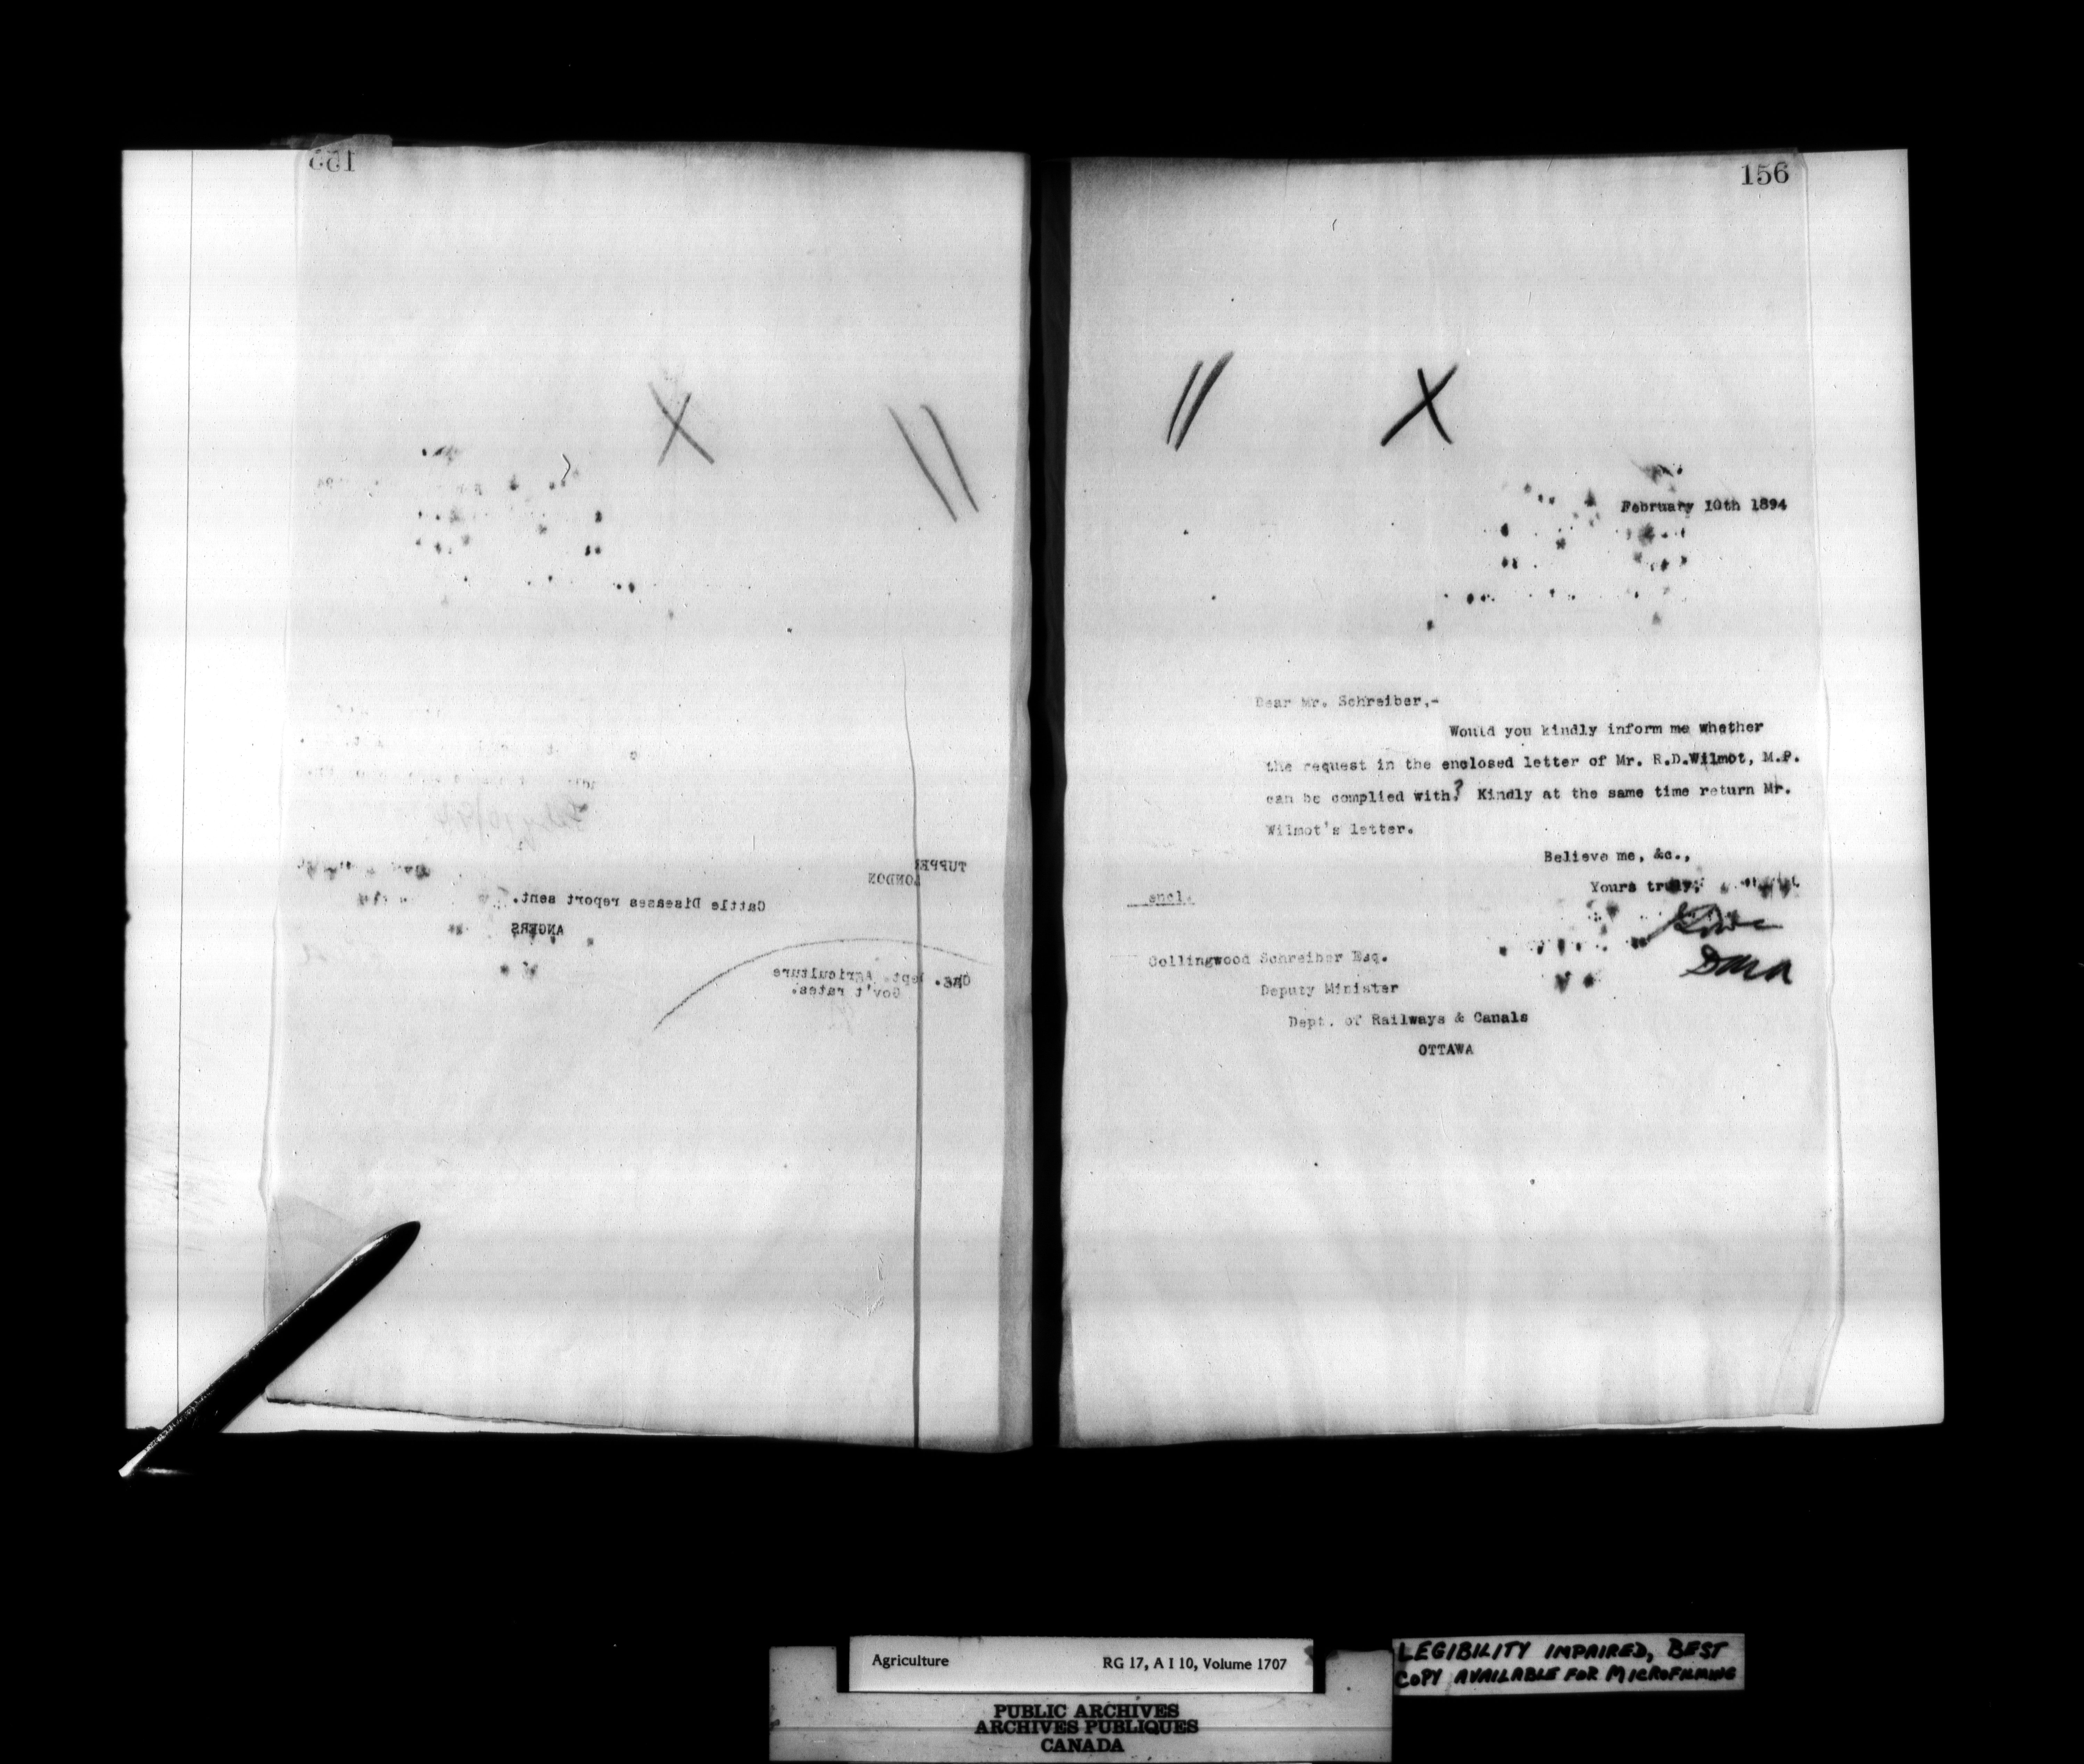 155
TUPPER
LONDON
Cattle Diseases report sent.
ANGERS
Chg. Dept. Agriculture
Gov't rates.
156
February 10th 1894
Dear Mr. Schreiber,-
Would you kindly inform me whether
the request in the enclosed letter of Mr. R.D.Wilmot, M.P.
can be complied with? Kindly at the same time return Mr.
Wilmot's letter.
Believe me, &c.,
Yours truly,
encl.
Collingwood Schreiber Esq.
Deputy Minister
Dept. of Railways & Canals
OTTAWA
Agriculture RG 17, A I 10, Volume 1707
PUBLIC ARCHIVES
ARCHIVES PUBLIQUES
CANADA
LEGIBILITY IMPAIRED, BEST
COPY AVAILABLE FOR MICROFILMING